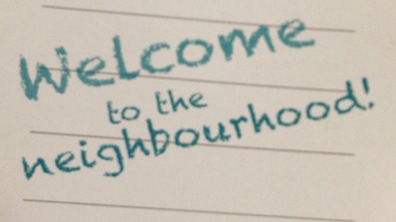 Welcome
to the
neighbourhood!